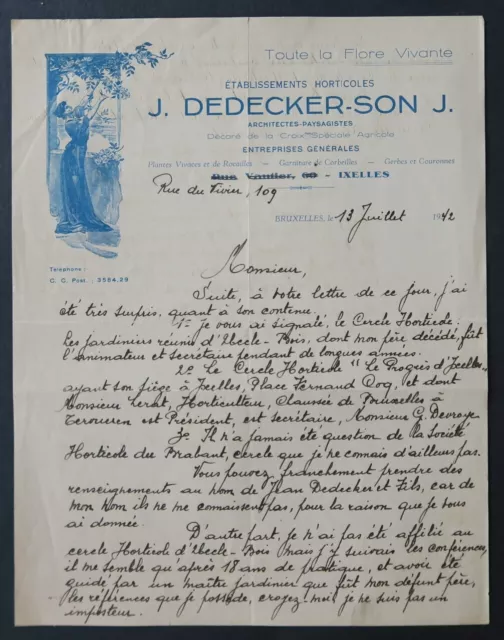 Toute la Flore Vivante
ÉTABLISSEMENTS HORTICOLES
J. DEDECKER-SON J.
ARCHITECTES-PAYSAGISTES
Décoré de la Croix Spéciale Agricole
ENTREPRISES GÉNÉRALES
Plantes Vivaces et de Rocailles — Garniture de Corbeilles — Gerbes et Couronnes
Rue Vautier, 60 - IXELLES
Rue du Vivier, 109
BRUXELLES, le 13 Juillet 1942
Téléphone :
C. C. Post. : 3584,29
Monsieur,
Suite, à votre lettre de ce jour, j'ai
été très surpris, quant à son contenu.
1º Je vous ai signalé, le Cercle Horticole.
Les jardiniers réunis d'Uccle-Bois, dont mon père, décédé, fût
l'animateur et secrétaire pendant de longues années.
2º Le Cercle Horticole "Le Progrès d'Ixelles„
ayant son siège à Ixelles, Place Fernand Coq, et dont
Monsieur Horticulteur, Chaussée de Bruxelles à
Tervueren est Président, est secrétaire, Monsieur G. Devroye
3º Il n'a jamais été question de la Société
Horticole du Brabant, cercle que je ne connais d'ailleurs pas.
Vous pouvez franchement prendre des
renseignements au nom de Jean Dedecker et Fils, car de
mon nom ils ne me connaissent pas, pour la raison que je vous
ai donnée.
D'autre part, je n'ai pas été affilié au
cercle Horticole d'Uccle-Bois mais j'y suivais les conférences,
il me semble qu'après 18 ans de pratique, et avoir été
guidé par un maître jardinier que fût mon défunt père,
les références que je possède, croyez-moi je ne suis pas un
imposteur.